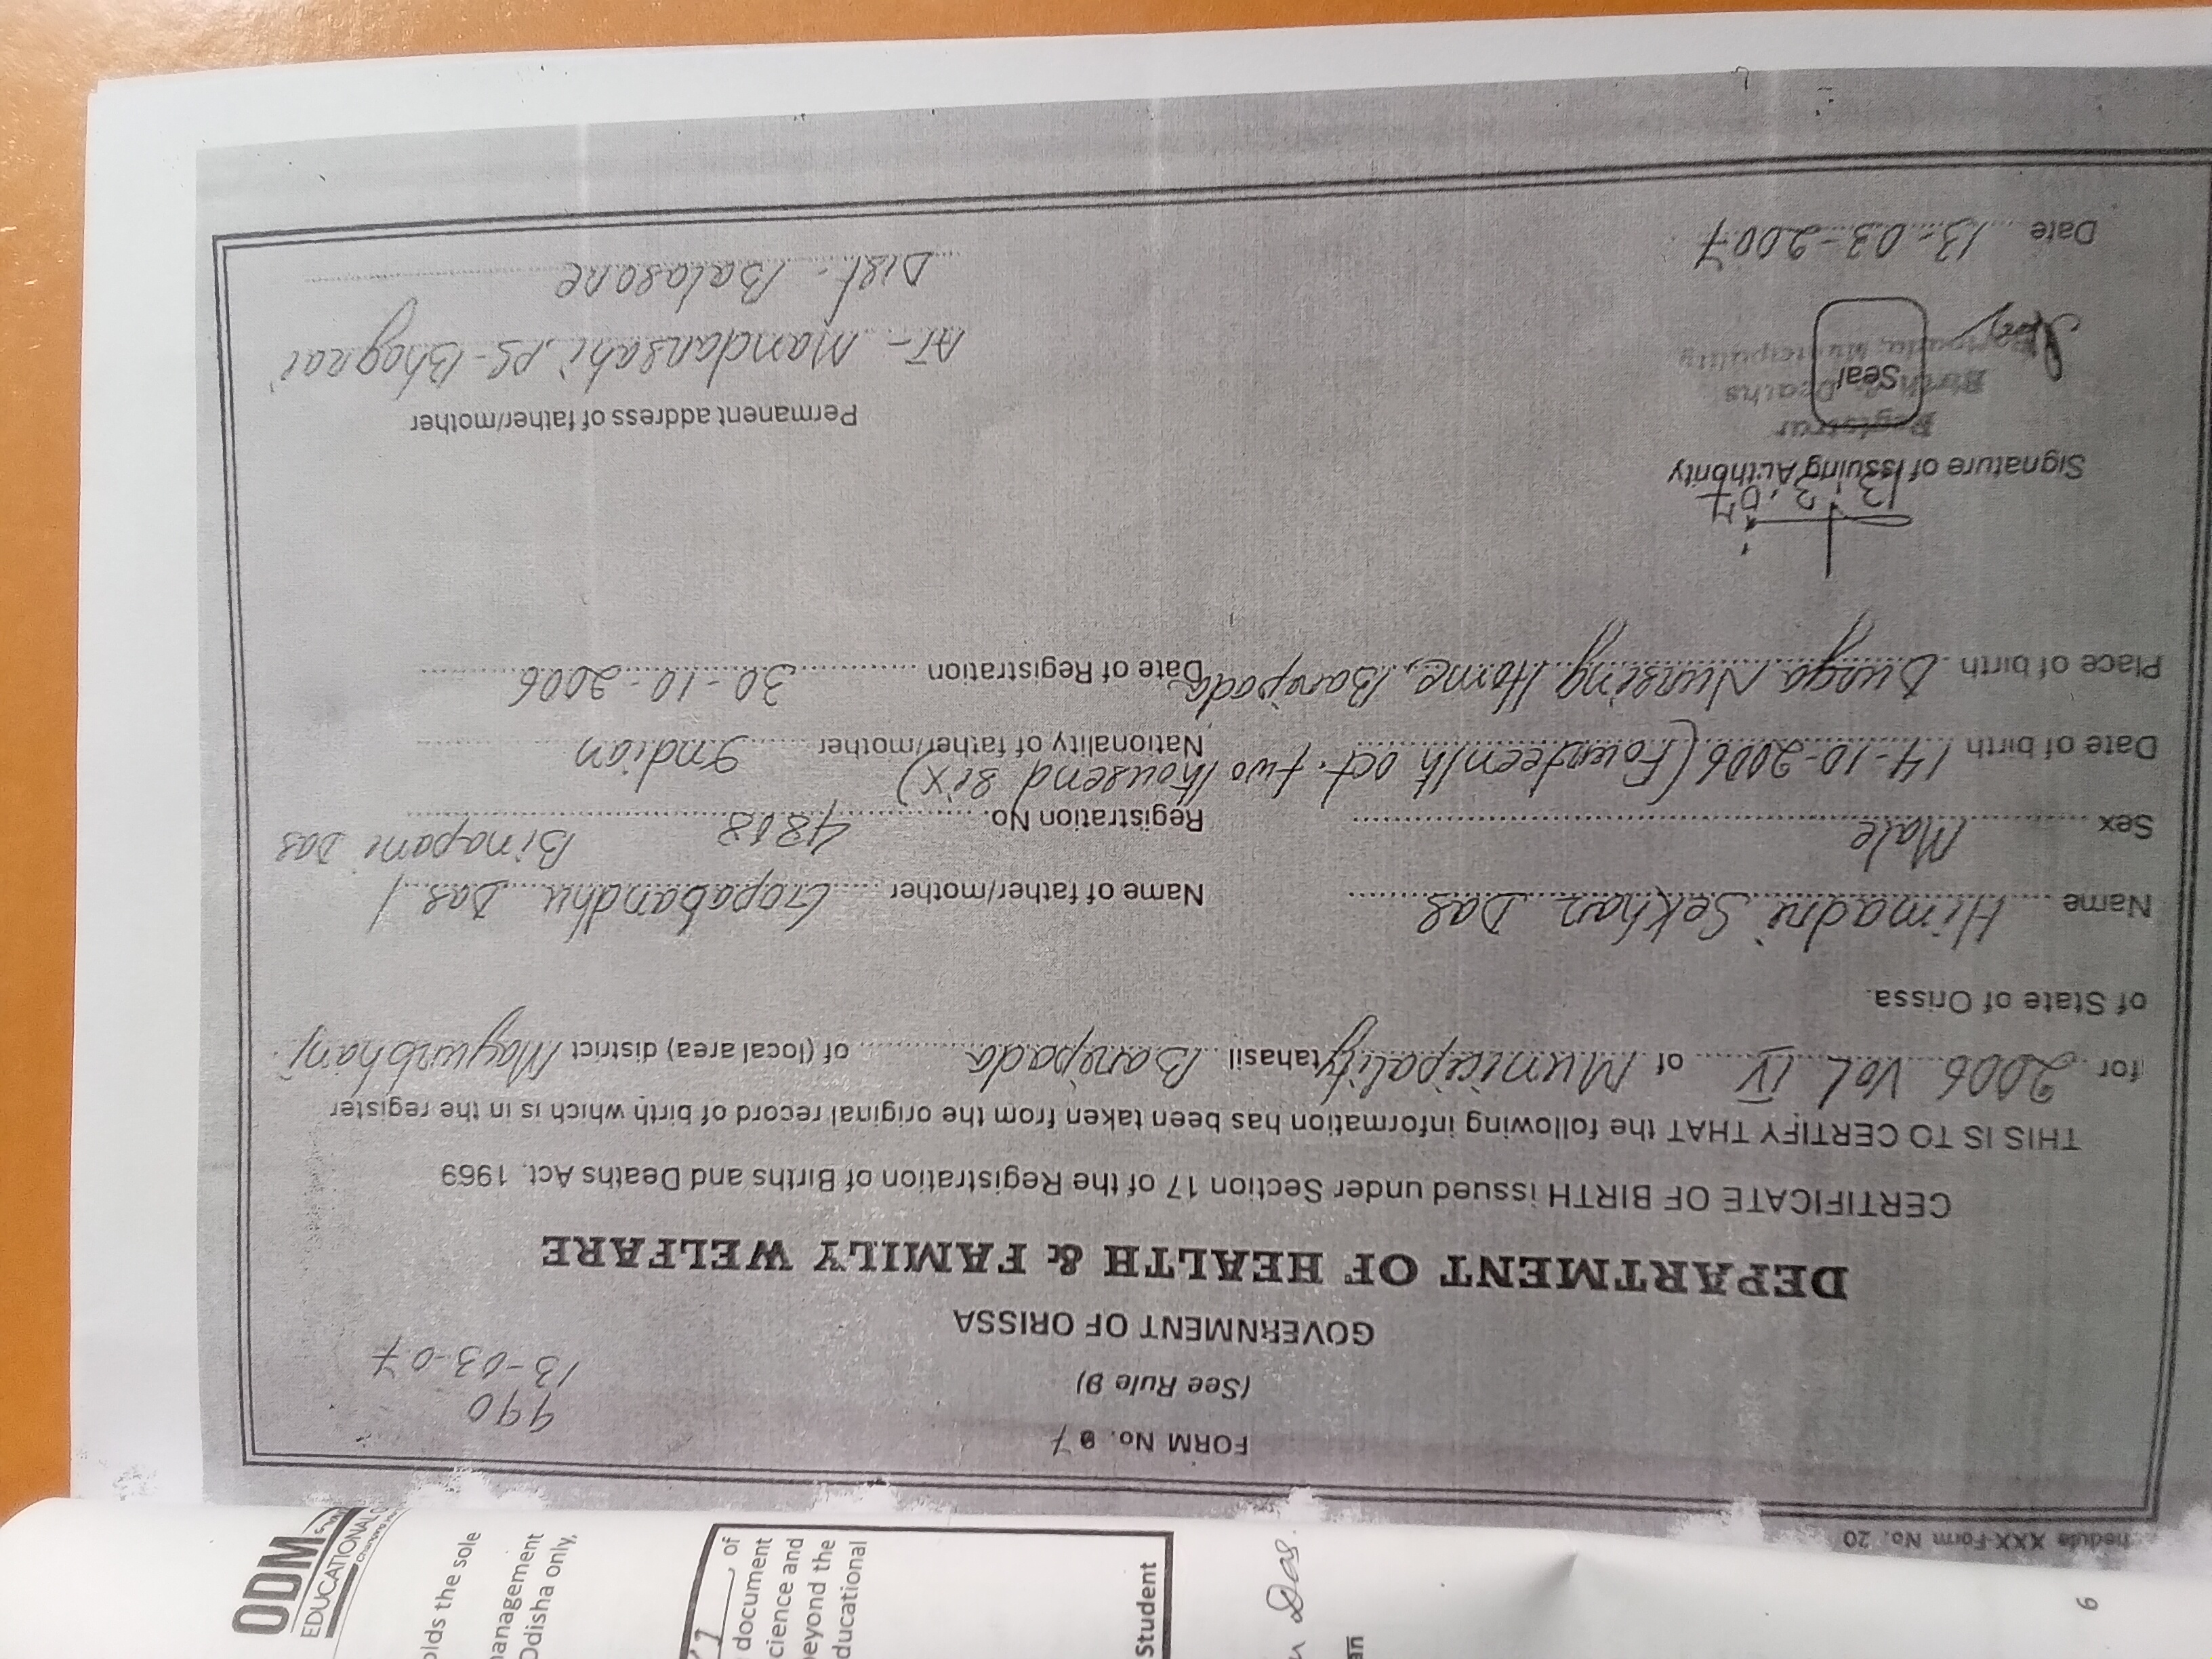 hedule XXX-Form No. 20
FORM No. 9 7
(See Rule 9)
990
13-03-07
GOVERNMENT OF ORISSA
DEPARTMENT OF HEALTH & FAMILY WELFARE
CERTIFICATE OF BIRTH issued under Section 17 of the Registration of Births and Deaths Act. 1969
THIS IS TO CERTIFY THAT the following information has been taken from the original record of birth which is in the register
for 2006 Vol. IV of Municipality tahasil Baripada of (local area) district Mayurbhanj.
of State of Orissa.
Name Himadri Sekhar Das Name of father/mother Gopabandhu Das /
Binapani Das
Sex Male Registration No. 4818
Date of birth 14-10-2006 (Fourteenth oct. two thousend six) Nationality of father/mother Indian
Place of birth Durga Nursing Home, Baripada Date of Registration 30-10-2006
13.3.07
Signature of Issuing Authority
Registrar
Births & Deaths
Municipality
Seal
Permanent address of father/mother
AT- Mandarsahi, PS- Bhograi
Dist- Balasore
Date 13-03-2007
ODM
EDUCATIONAL
olds the sole
management
Odisha only,
, of
document
cience and
eyond the
ducational
Student
Das.
an
6